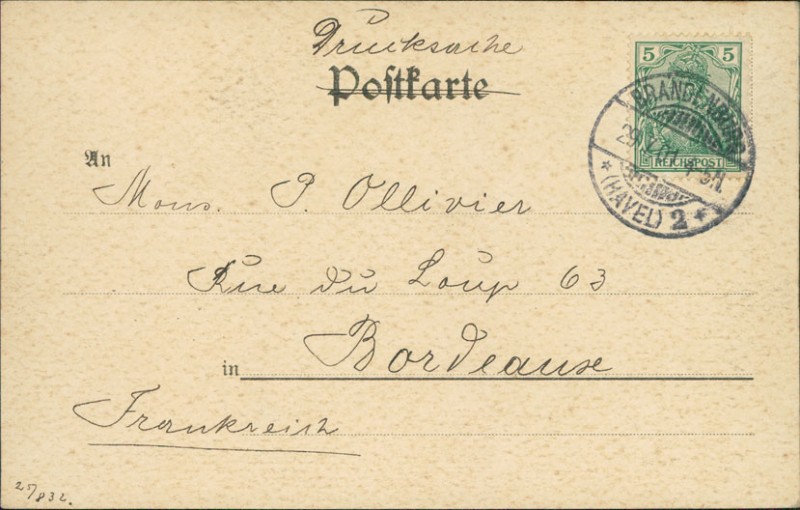 Drucksache
Postkarte
5 5
REICHSPOST
BRANDENBURG
(HAVEL) 2
An
Mons. P. Ollivier
Rue du Loup 63
in Bordeaux
Frankreich